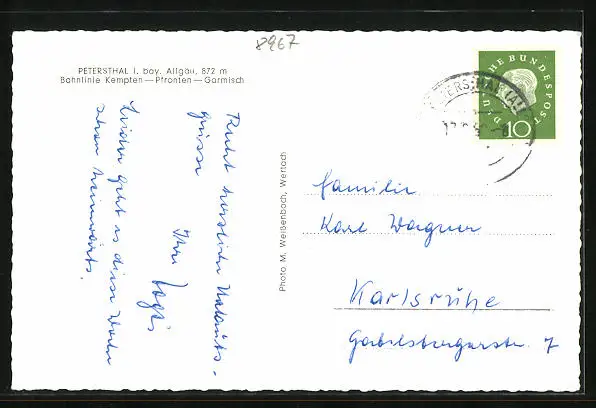 8967
PETERSTHAL i. bay. Allgäu, 872 m
Bahnlinie Kempten — Pfronten — Garmisch
DEUTSCHE BUNDESPOST
10
Recht herzliche Urlaubs-
grüsse
Ihre
Leider geht es diese Woche
schon heimwärts.
Photo M. Weißenbach, Wertach
Familie
Karl Wagner
Karlsruhe
Gabelsbergerstr. 7